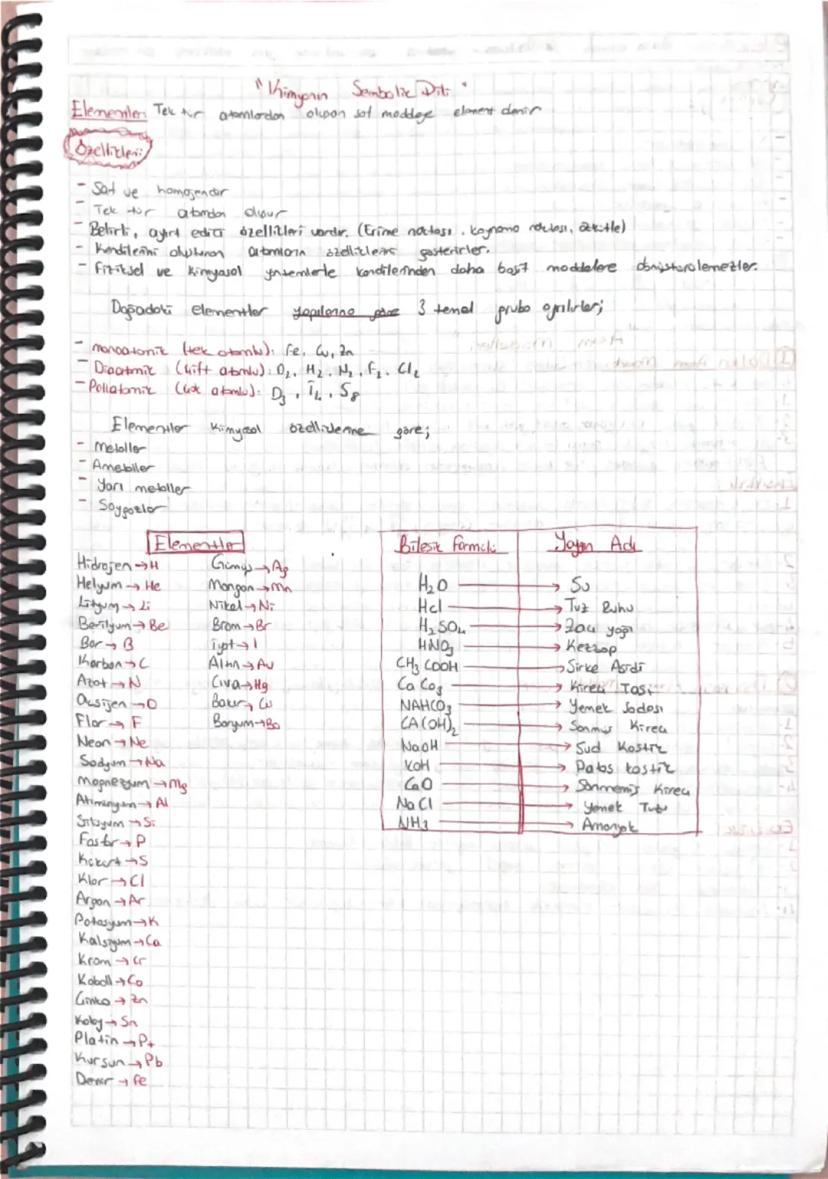 "Kimyanın Sembolik Dili"
Elementler: Tek tür atomlardan oluşan saf maddeye element denir
Özellikleri
- Saf ve homojendir
- Tek tür atomdan oluşur
- Belirli, ayırt edici özellikleri vardır. (Erime noktası, kaynama noktası, özkütle)
- Kendilerini oluşturan atomların özelliklerini gösterirler.
- Fiziksel ve kimyasal yöntemlerle kendilerinden daha basit maddelere dönüştürülemezler.
Doğadaki elementler yapılarına göre 3 temel gruba ayrılırlar;
- monoatomik (tek atomlu): Fe, Cu, Zn
- Diaotmik (çift atomlu): O₂, H₂, N₂, F₂, Cl₂
- Poliatomik (çok atomlu): O₃, I₄, S₈
Elementler kimyasal özelliklerine göre;
- Metaller
- Ametaller
- Yarı metaller
- Soygazlar
Elementler
Hidrojen → H
Helyum → He
Lityum → Li
Berilyum → Be
Bor → B
Karbon → C
Azot → N
Oksijen → O
Flor → F
Neon → Ne
Sodyum → Na
Magnezyum → Mg
Alüminyum → Al
Silisyum → Si
Fosfor → P
Kükürt → S
Klor → Cl
Argon → Ar
Potasyum → K
Kalsiyum → Ca
Krom → Cr
Kobalt → Co
Çinko → Zn
Kalay → Sn
Platin → Pt
Kurşun → Pb
Demir → Fe
Gümüş → Ag
Mangan → Mn
Nikel → Ni
Brom → Br
İyot → I
Altın → Au
Civa → Hg
Bakır → Cu
Baryum → Ba
Bileşik Formülü Yaygın Adı
H₂O → Su
Hcl → Tuz Ruhu
H₂SO₄ → Zaç yağı
HNO₃ → Kezzap
CH₃COOH → Sirke Asidi
CaCo₃ → Kireç Taşı
NAHCO₃ → Yemek Sodası
CA(OH)₂ → Sönmüş Kireç
NaOH → Sud Kostik
KOH → Potas kostik
CaO → Sönmemiş Kireç
NaCl → Yemek Tuzu
NH₃ → Amonyak